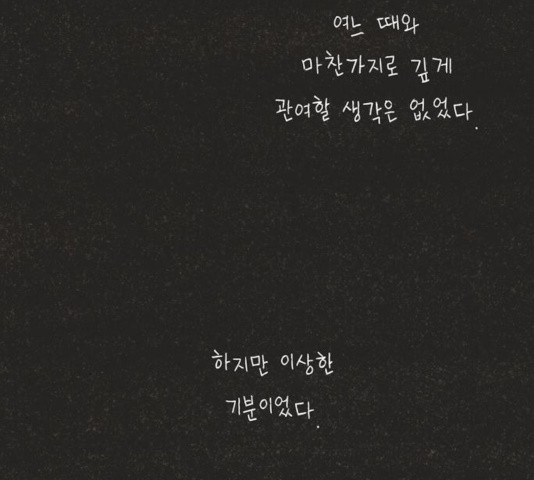 여느 때와
마찬가지로 깊게
관여할 생각은 없었다.
하지만 이상한
기분이었다.